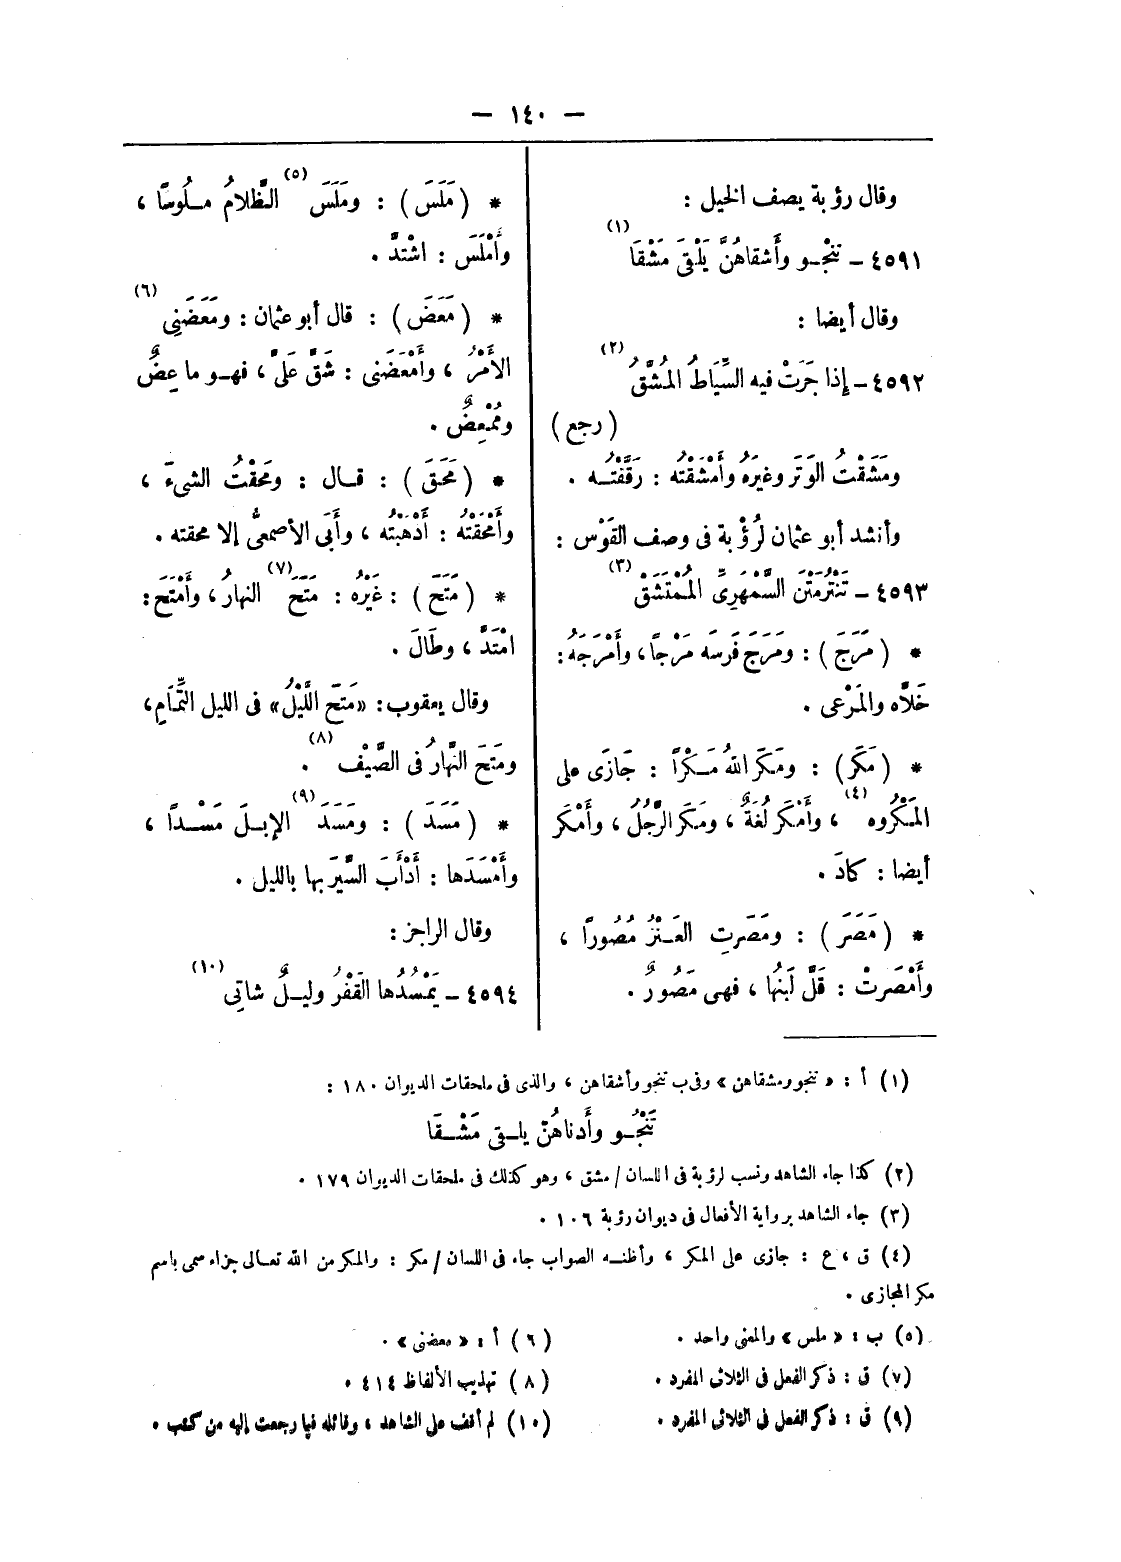 — ١٤٠ —
وقال رؤبة يصف الخيل :
٤٥٩١ – تنْجُــو وأَشقاهُنَّ يَلْقَى مَشْقَا (١)
وقال أيضا :
٤٥٩٢ – إذا جَرَتْ فيه السِّيَاطُ المُشَّقُ (٢)
( رجع )
ومَشَقْتُ الوَتَر وغيرَهُ وأَمْشَقْتُه : رَقَّقْتُــه .
وأنشد أبو عثمان لرُؤْبة فى وصف القَوْس :
٤٥٩٣ – تَنْتَرِمَتْنَ السَّمْهَرِىِّ المُمْتَشَقْ (٣)
* ( مَرَجَ ) : ومَرَجَ فَرسَه مَرْجًا ، وأَمْرَجَهُ :
خَلَّاه والمَرْعى .
* ( مَكَر ) : ومَكَر اللهُ مَــكْرًا : جَازَى على
المَكْرُوه (٤) ، وأَمْكَر لُغَةٌ ، ومَكَر الرَّجُلُ ، وأَمْكَر
أيضا : كادَ .
* ( مَصَرَ ) : ومَصَرتِ العَــنْزُ مُصُورًا ،
وأَمْصَرتْ : قَلَّ لَبَنُها ، فهى مَصُورٌ .
* ( مَلَسَ ) : ومَلَسَ (٥) الظَّلامُ مــلُوسًا ،
وأَمْلَسَ : اشْتدَّ .
* ( مَعَضَ ) : قال أبو عثمان : ومَعَضَنِى (٦)
الأَمْرُ ، وأَمْعَضَنى : شَقَّ عَلَىَّ ، فهــو ما عِضٌ
ومُمْعِضٌ .
* ( مَحَقَ ) : قــال : ومَحَقْتُ الشىءَ ،
وأَمْحَقْتُهُ : أَذْهَبْتُه ، وأَبَى الأصمعىُّ إلا محقته .
* ( مَتَحَ ) : غَيْرُه : مَتَحَ (٧) النهارُ ، وأَمْتَحَ :
امْتَدَّ ، وطَالَ .
وقال يعقوب : «مَتَحَ اللَّيْلُ» فى الليل التِّمَامِ ،
ومَتَحَ النَّهارُ فى الصَّيْف (٨) .
* ( مَسَدَ ) : ومَسَدَ (٩) الإبــلَ مَسْــدًا ،
وأَمْسَدَها : أَدْأَبَ السَّيْرَ بها بالليل .
وقال الراجز :
٤٥٩٤ – يَمْسُدُها القَفْرُ وليــلٌ شاتِى (١٠)
(١) أ : « تنجو ومشقاهن » وفى ب تنجو وأشقاهن ، والذى فى ملحقات الديوان ١٨٠ :
تَنْجُــو وأَدناهُنّ يلــقى مَشْــقَا
(٢) كذا جاء الشاهد ونسب لرؤبة فى اللسان / مشق ، وهو كذلك فى ملحقات الديوان ١٧٩ .
(٣) جاء الشاهد برواية الأفعال فى ديوان رؤبة ١٠٦ .
(٤) ق ، ع : جازى على المكر ، وأظنــه الصواب جاء فى اللسان / مكر : والمكر من الله تعــالى جزاء سمى باسم
مكر المجازى .
(٥) ب : « ملس » والمعنى واحد .
(٦) أ : « معضنى » .
(٧) ق : ذكر الفعل فى الثلاثى المفرد .
(٨) تهذيب الألفاظ ٤١٤ .
(٩) ق : ذكر الفعل فى الثلاثى المفرد .
(١٠) لم أقف على الشاهد ، وقائله فيما رجعت إليه من كتب .